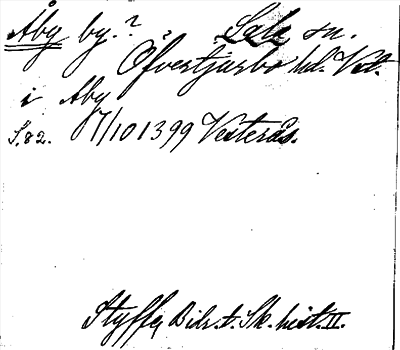 Åby by.? Sala sn.
Öfvertjurbo hd. Vstm.
i Aby
S. 82. 7/10 1399 Vesterås.
Styffe, Bidr. t. Sk. hist. II.